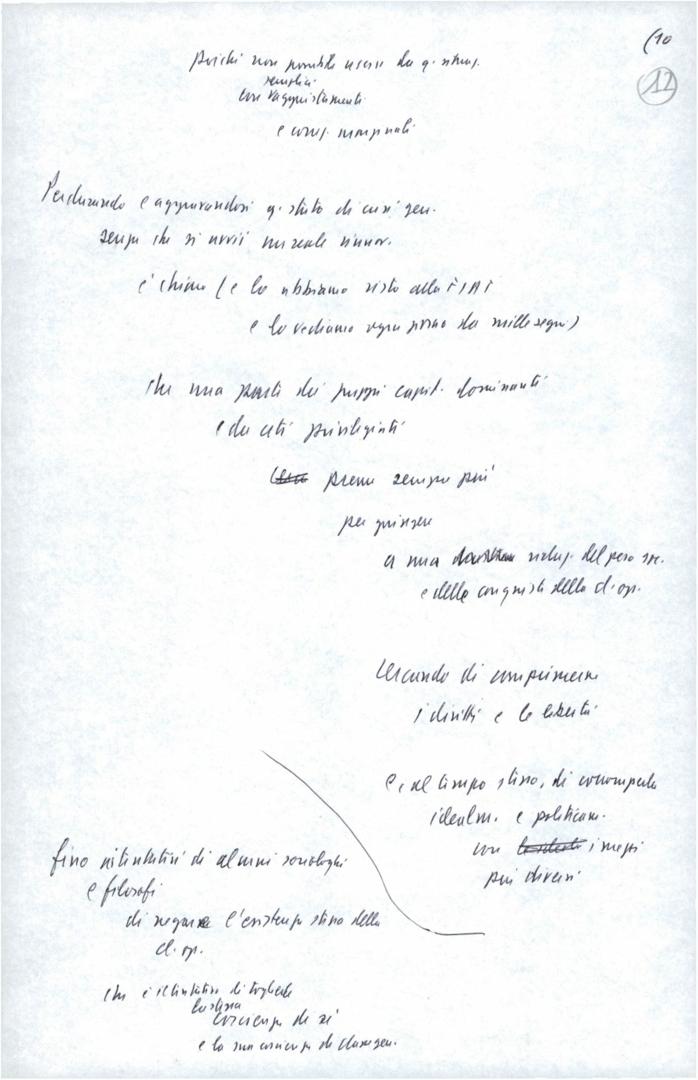 (10
12
poiché non possibile uscire da q. situaz.
semplici
con raggiustamenti
e corez. marginali
Perdurando e aggravandosi q. stato di crisi gen.
senza che si avvii un reale rinnov.
è chiaro (e lo abbiamo visto alla FIAT
e lo vediamo ogni giorno da mille segni)
che una parte dei gruppi capit. dominanti
e dei ceti privilegiati
preme sempre più
per giungere
a una riduz. del peso
e delle conquiste della cl. op.
cercando di comprimerne
i diritti e le libertà
e, al tempo stesso, di corromperla
idealm. e politicam.
con i mezzi
più diversi
fino ai tentativi di alcuni sociologhi
e filosofi
di negare l'esistenza stessa della
cl. op.
che è il tentativo di togliere
la stessa
coscienza di sé
e la sua coscienza di classe gen.